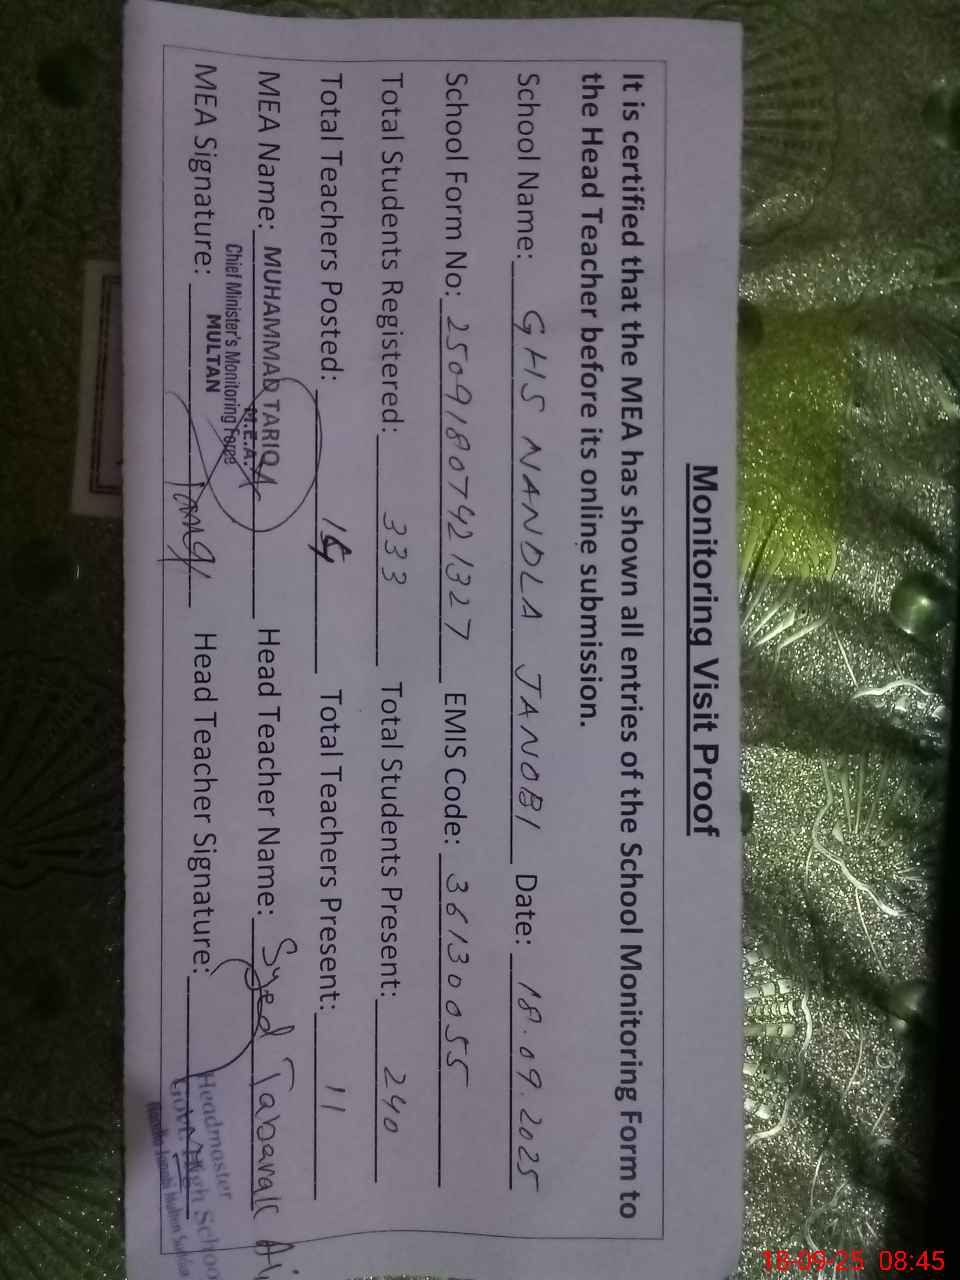 Monitoring Visit Proof
It is certified that the MEA has shown all entries of the School Monitoring Form to
the Head Teacher before its online submission.
School Name: GHS NANDLA JANOBI Date: 18.09.2025
School Form No: 25091807421327 EMIS Code: 36130055
Total Students Registered: 333 Total Students Present: 240
Total Teachers Posted: Total Teachers Present: 11
MEA Name: MUHAMMAD TARIQ Head Teacher Name: Syed Tabarak
M.E.A.
Chief Minister's Monitoring Force
MULTAN
MEA Signature: Tariq Head Teacher Signature:
Headmaster
Govt. High School
18-09-25 08:45